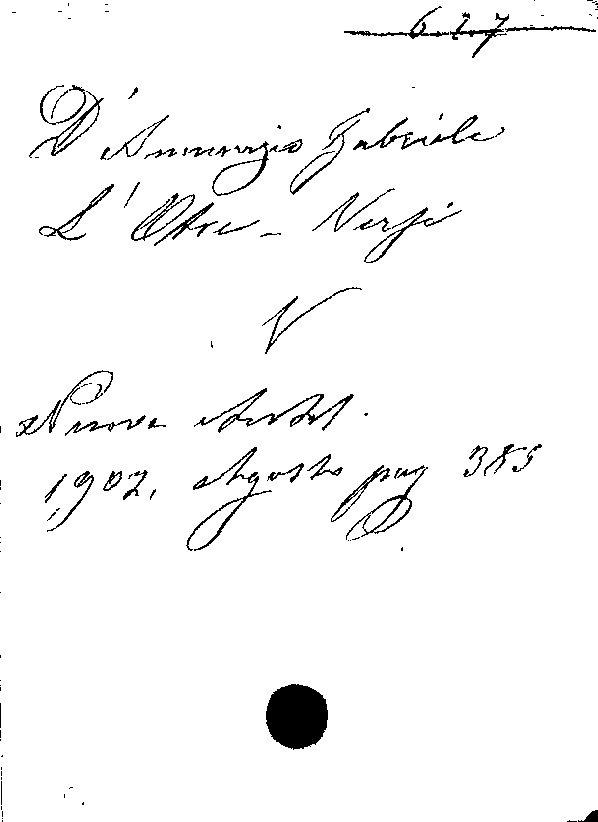 627
D'Annunzio Gabriele
L'Otre - Versi
V
Nuova Antol.
1902, Agosto pag 385